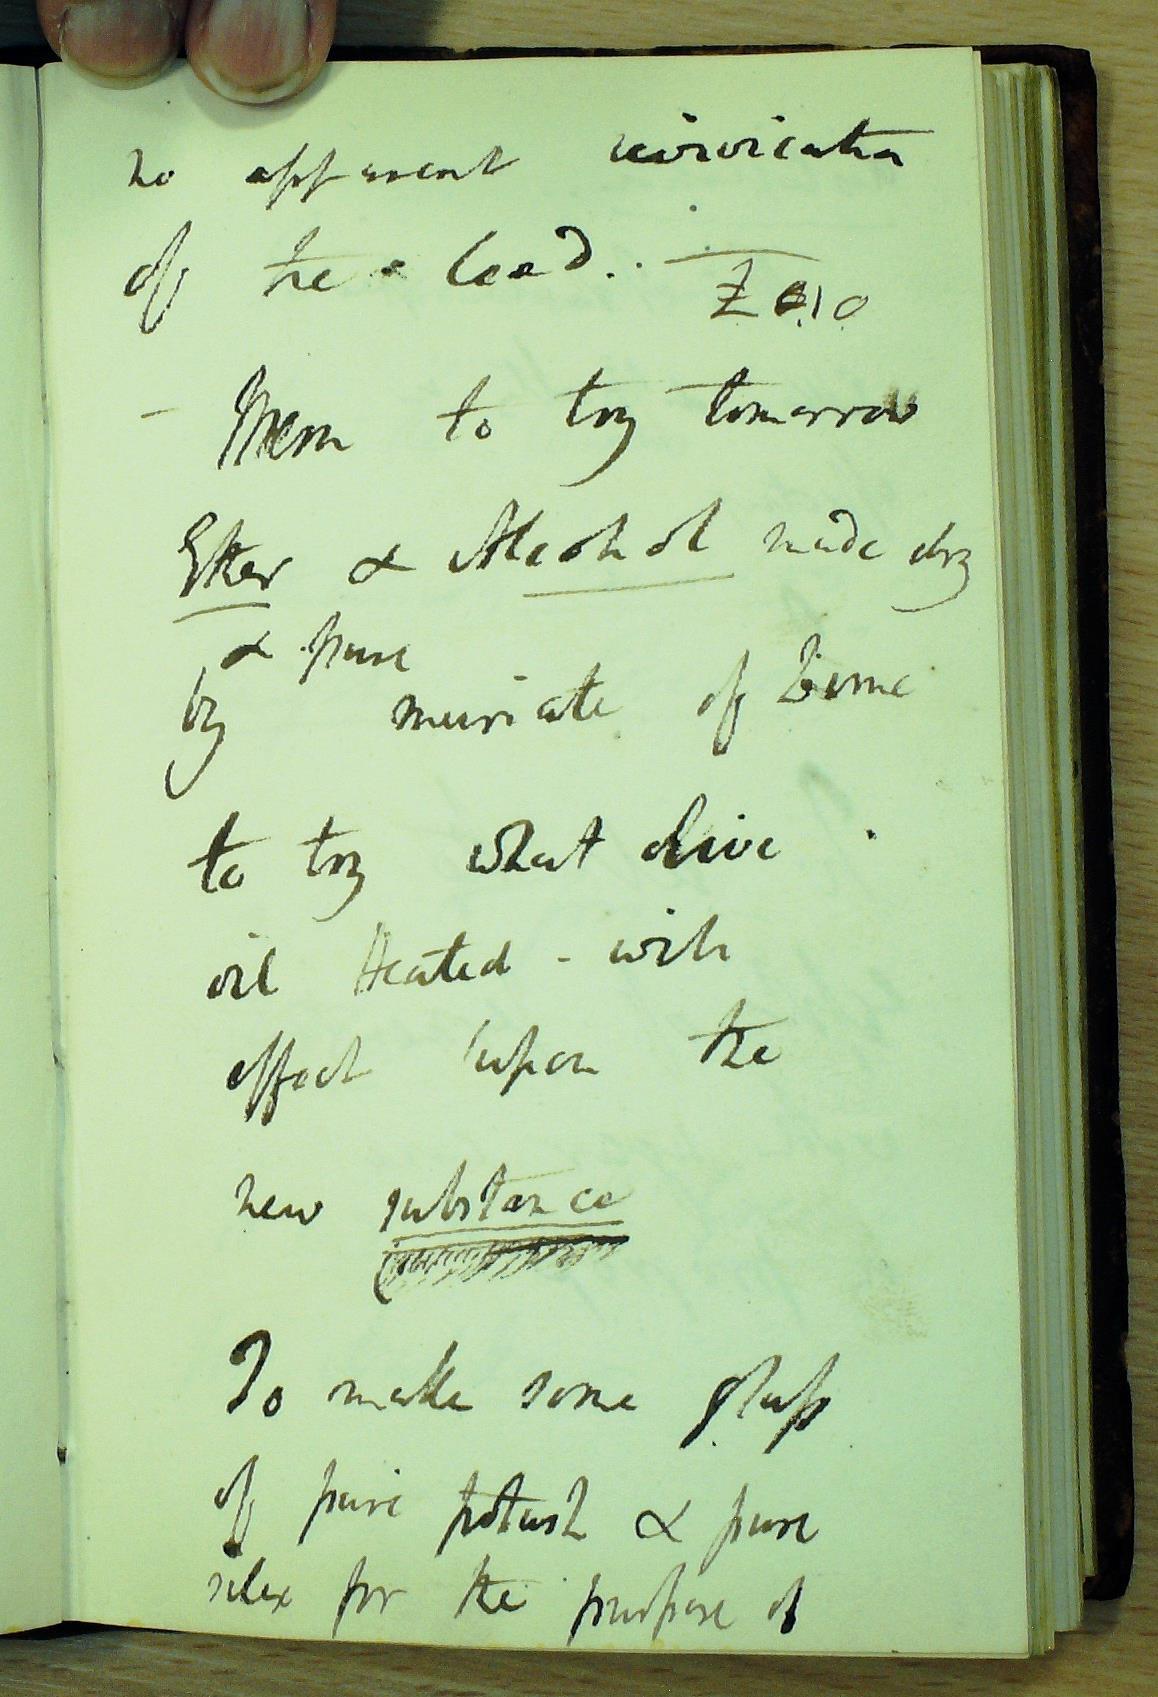 no apparent revivication
of the lead. .
Mem to try tomorrow
Ether & Alcohol made dry
& pure
by muriate of Lime
to try what olive
oil Heated - with
effect upon the
new substance
To make some glass
of pure potash & pure
silex for the purpose of